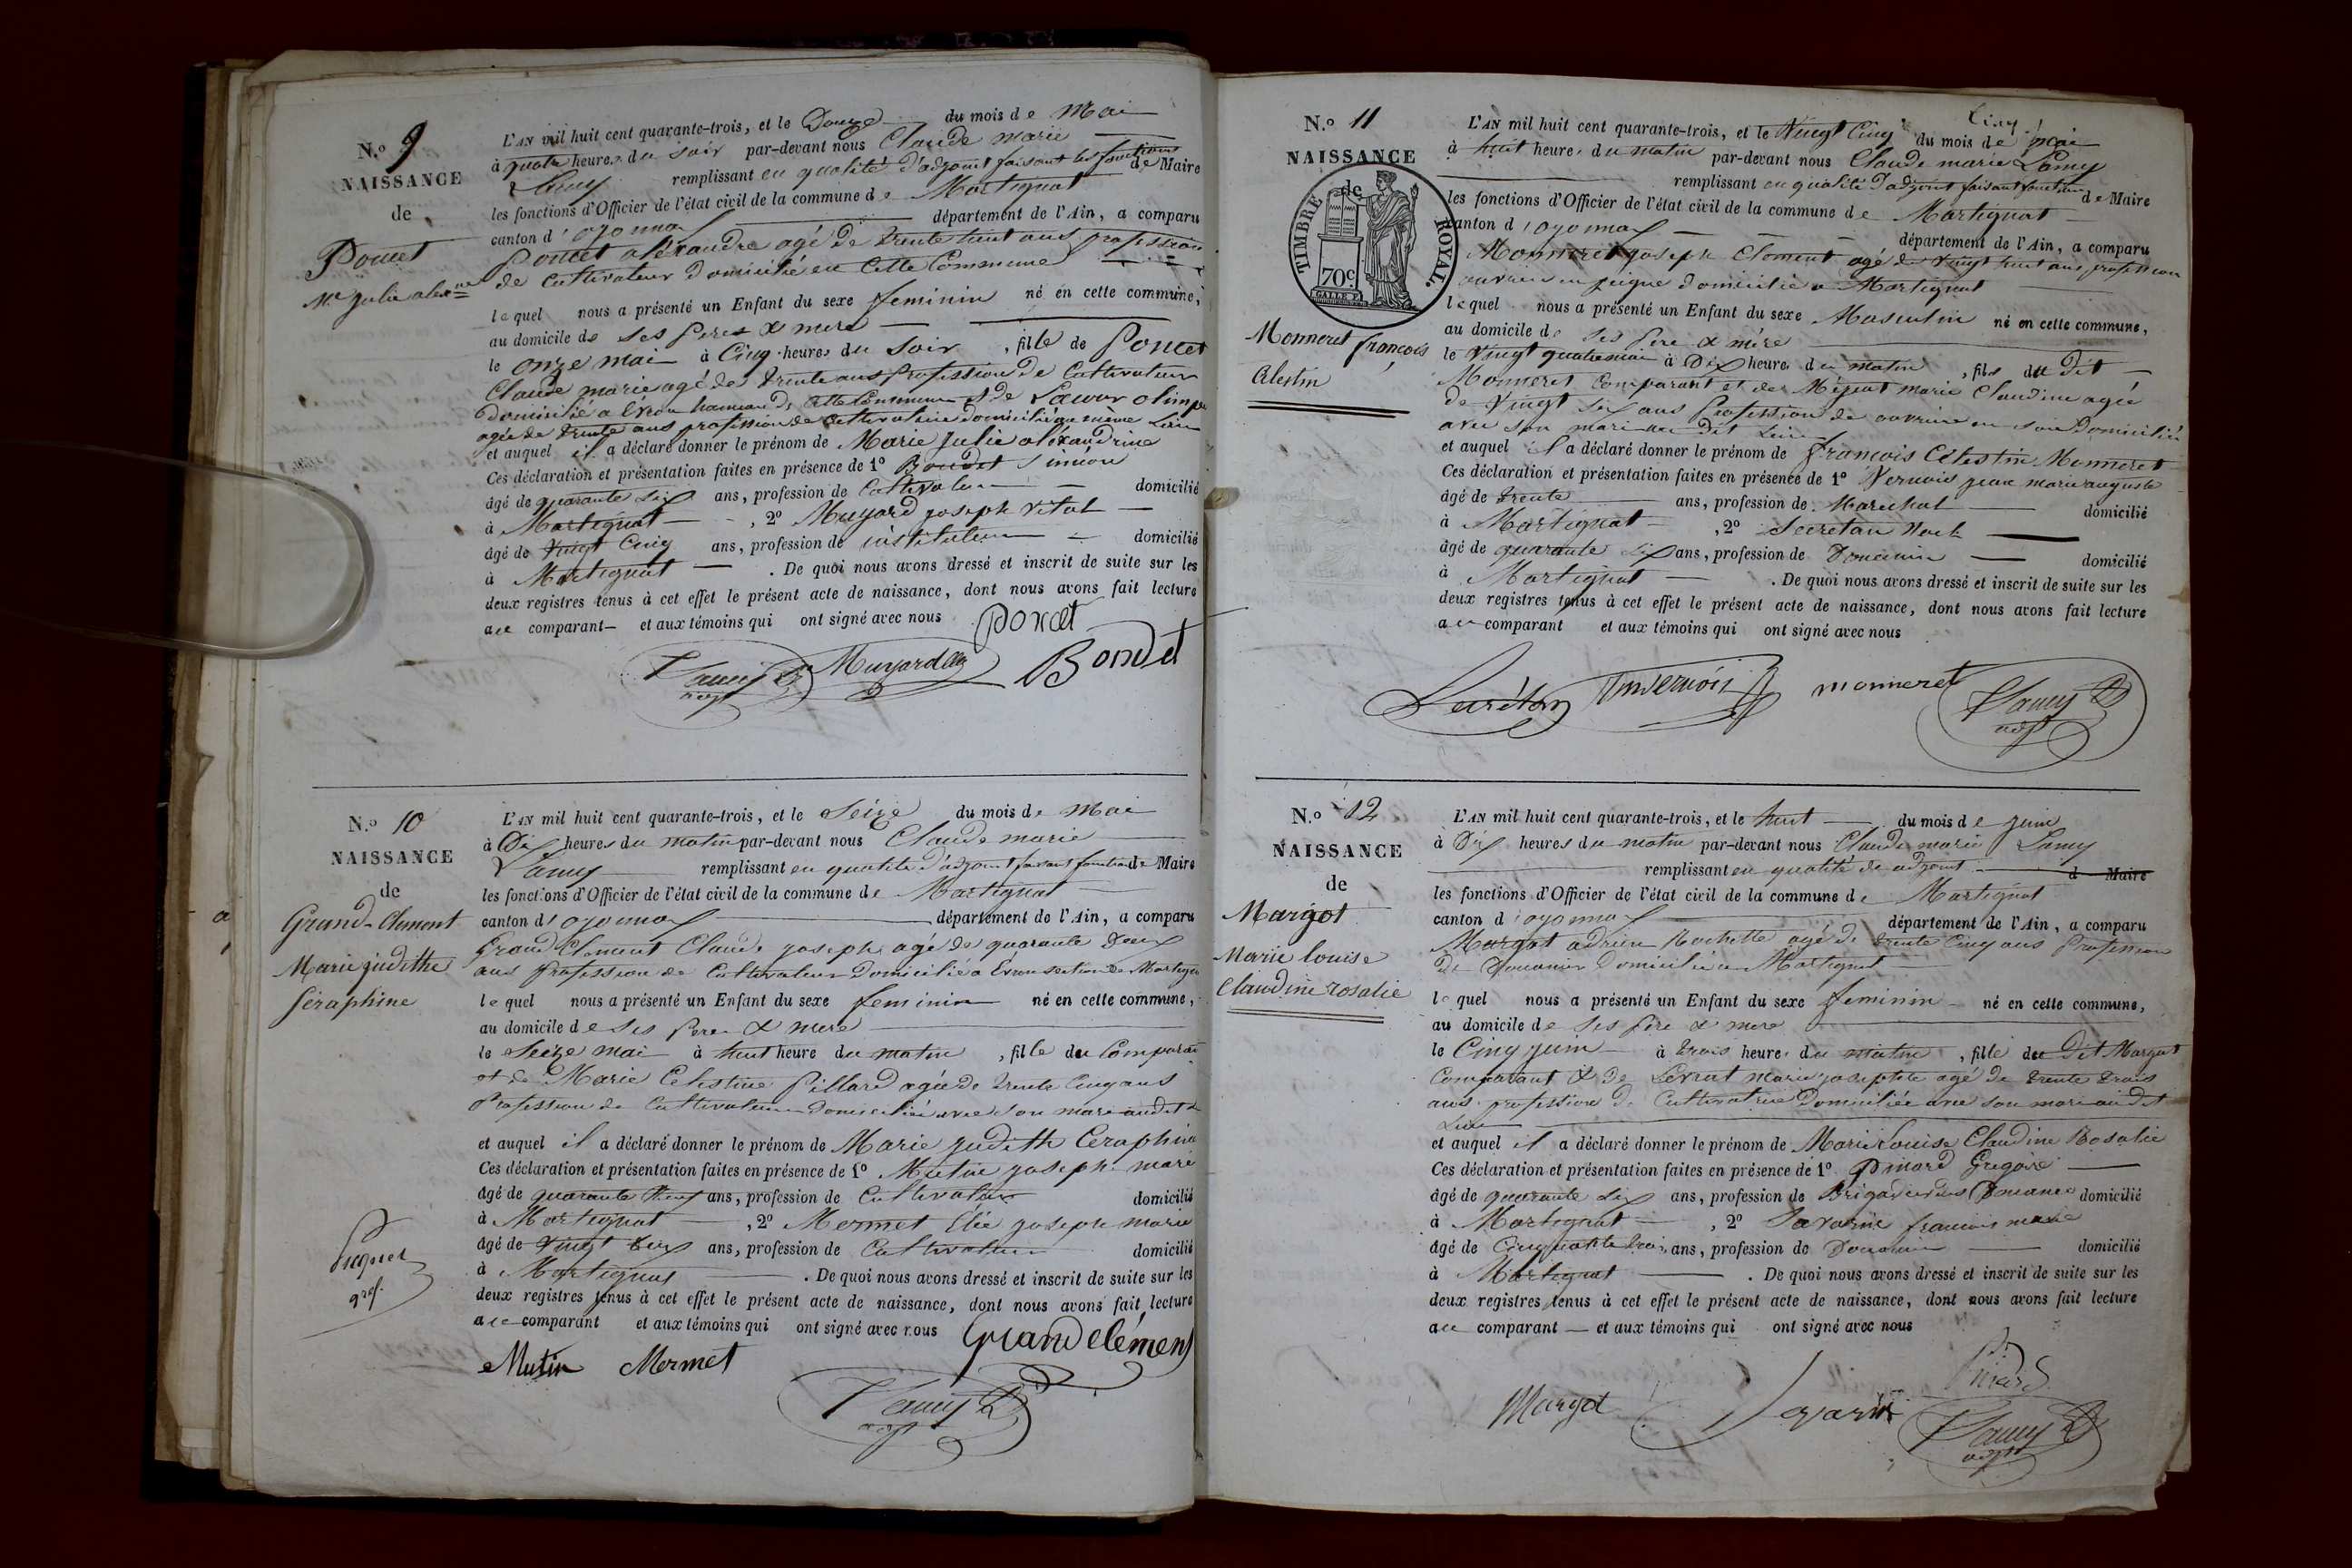 N.º 9
NAISSANCE
de
Poncet
Mie julie alexne
L'AN mil huit cent quarante-trois, et le Douze du mois de Mai
à quatre heures du soir par-devant nous Claude marie
Lamy remplissant en qualité d'adjoint faisant les fonctions de Maire
les fonctions d'Officier de l'état civil de la commune de Martignat
canton d'oyonnax département de l'Ain, a comparu
Poncet alexandre agé de trente huit ans profession
de Cultivateur domicilié en Cette Commune
lequel nous a présenté un Enfant du sexe feminin né en cette commune,
au domicile de ses Peres & mere
le onze mai à Cinq heures du Soir, fille de Poncet
Claude marie agé de trente ans Profession de Cultivateur
domicilié a Evron hameau de cette Commune & de olimpe
agée de trente ans profession de Cultivatrice domiciliée au même Lieu
et auquel il a déclaré donner le prénom de Marie Julie alexandrine
Ces déclaration et présentation faites en présence de 1º Bondet Siméon
âgé de quarante Six ans, profession de Cultivateur domicilié
à Martignat, 2º Muyard joseph Vital
âgé de Vingt Cinq ans, profession de instituteur domicilié
à Martignat. De quoi nous avons dressé et inscrit de suite sur les
deux registres tenus à cet effet le présent acte de naissance, dont nous avons fait lecture
au comparant et aux témoins qui ont signé avec nous Poncet
Lamy adjt Muyard Bondet
N.º 10
NAISSANCE
de
Grand-Clement
Marie judithe
Séraphine
L'AN mil huit cent quarante-trois, et le Seize du mois de Mai
à Dix heures du matin par-devant nous Claude marie
Lamy remplissant en qualité d'adjoint faisant fonction de Maire
les fonctions d'Officier de l'état civil de la commune de Martignat
canton d'oyonnax département de l'Ain, a comparu
Grand Clement Claude joseph agé de quarante Deux
ans Profession de Cultivateur Domicilié a Evron section de Martigna
lequel nous a présenté un Enfant du sexe feminin né en cette commune,
au domicile de ses Pere & mere
le Seize mai à huit heure du matin, fille du Comparant
et de Marie Celestine Pillard agée de trente Cinq ans
Profession de Cultivateur domiciliée avec son mari audit
et auquel il a déclaré donner le prénom de Marie judith Ceraphine
Ces déclaration et présentation faites en présence de 1º Mutin joseph marie
âgé de quarante ans, profession de Cultivateur domicilié
à Martignat, 2º Mermet Elie joseph marie
âgé de Vingt ans, profession de Cultivateur domicilié
à Martignat. De quoi nous avons dressé et inscrit de suite sur les
deux registres tenus à cet effet le présent acte de naissance, dont nous avons fait lecture
au comparant et aux témoins qui ont signé avec nous Grandclément
Mutin Mermet
Lamy adjt
gref.
N.º 11
NAISSANCE
de
TIMBRE ROYAL.
70c.
Monneret françois
Celestin
L'AN mil huit cent quarante-trois, et le Vingt Cinq du mois de mai
à huit heures du matin par-devant nous Claude marie Lamy
remplissant en qualité d'adjoint faisant fonction de Maire
les fonctions d'Officier de l'état civil de la commune de Martignat
canton d'oyonnax département de l'Ain, a comparu
Monneret joseph Clement agé de vingt huit ans profession
ouvrier en peigne domicilié a Martignat
lequel nous a présenté un Enfant du sexe Masculin né en cette commune,
au domicile de ses Pere & mère
le Vingt quatre mai à Dix heures du matin, fils du Dit
Monneret Comparant et de marie Claudine agée
de Vingt Six ans Profession de ouvrière en soie Domiciliée
avec son mari au dit Lieu
et auquel il a déclaré donner le prénom de françois Célestin Monneret
Ces déclaration et présentation faites en présence de 1º Vernois jean marie auguste
âgé de trente ans, profession de Marechal domicilié
à Martignat, 2º Secretan Roch
âgé de quarante Six ans, profession de Douanier domicilié
à Martignat. De quoi nous avons dressé et inscrit de suite sur les
deux registres tenus à cet effet le présent acte de naissance, dont nous avons fait lecture
au comparant et aux témoins qui ont signé avec nous
Secrétan Vernois monneret Lamy adjt
N.º 12
NAISSANCE
de
Margot
Marie louise
Claudine rosalie
L'AN mil huit cent quarante-trois, et le huit du mois de juin
à Dix heures du matin par-devant nous Claude marie Lamy
remplissant en qualité de adjoint d Maire
les fonctions d'Officier de l'état civil de la commune de Martignat
canton d'oyonnax département de l'Ain, a comparu
Margot adrien Rochette agé de trente Cinq ans Profession
de Douanier Domicilié a Martignat
lequel nous a présenté un Enfant du sexe feminin né en cette commune,
au domicile de ses Pere & mere
le Cinq juin à trois heures du matin, fille du Dit Margot
Comparant & de Levrat marie josephte agé de trente trois
ans profession de Cultivatrice Domiciliée avec son mari au dit
Lieu
et auquel il a déclaré donner le prénom de Marie Louise Claudine Rosalie
Ces déclaration et présentation faites en présence de 1º Pinard Gregoire
âgé de quarante Six ans, profession de Brigadier des Douanes domicilié
à Martignat, 2º Savarin francois marie
âgé de Cinquante trois ans, profession de Douanier domicilié
à Martignat. De quoi nous avons dressé et inscrit de suite sur les
deux registres tenus à cet effet le présent acte de naissance, dont nous avons fait lecture
au comparant et aux témoins qui ont signé avec nous
Pinard
Margot Savarin
Lamy adjt